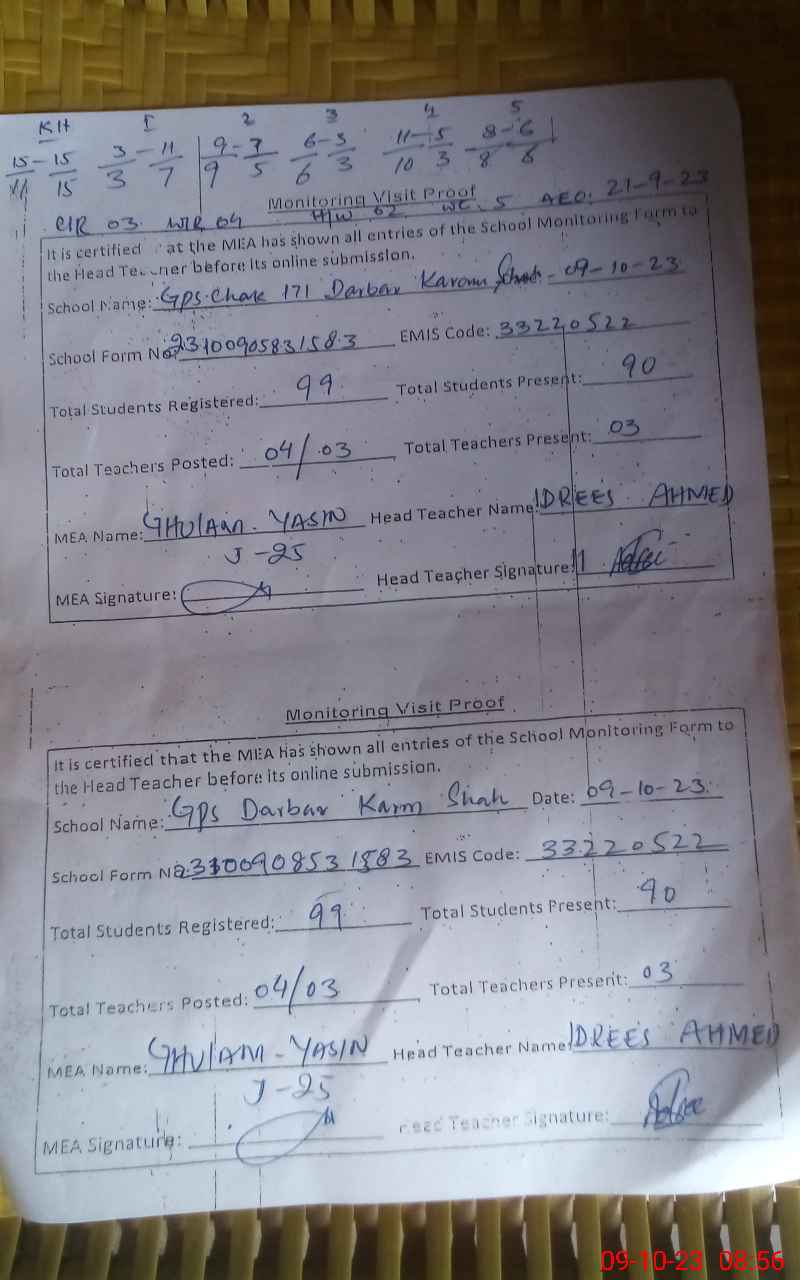 KH 1 2 3 4 5
15-15 3-11 9-7 6-3 11-5 8-6
11 15 3 7 9 5 6 3 10 3 8 6
Monitoring Visit Proof
CIR 03 WIR 04 H/W 02 WC 5 AEO: 21-9-23
It is certified at the MEA has shown all entries of the School Monitoring Form to
the Head Teacher before its online submission.
School Name: Gps Chak 171 Darbar Karam 09-10-23
School Form No 23100905831583 EMIS Code: 33220522
Total Students Registered: 99 Total Students Present: 90
Total Teachers Posted: 04/03 Total Teachers Present: 03
MEA Name: GHULAM YASIN Head Teacher Name: IDREES AHMED
J-25
MEA Signature: Head Teacher Signature:
Monitoring Visit Proof
It is certified that the MEA has shown all entries of the School Monitoring Form to
the Head Teacher before its online submission.
School Name: Gps Darbar Karm Shah Date: 09-10-23
School Form No EMIS Code: 33220522
Total Students Registered: 99 Total Students Present: 90
Total Teachers Posted: 04/03 Total Teachers Present: 03
MEA Name: GHULAM-YASIN Head Teacher Name: IDREES AHMED
J-25
MEA Signature: Head Teacher Signature:
09-10-23 08:56